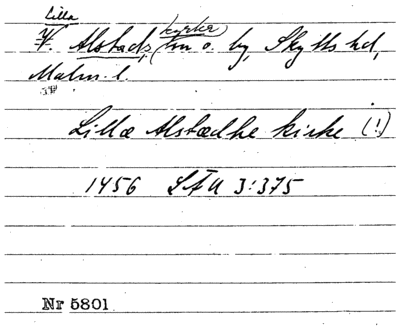 Lilla
V. Alstads (kyrka) sn o. by, Skytts hd,
Malm. l.
Lillæ Alstædhe kirke (!)
1456 SFU 3:375
Nr 5801